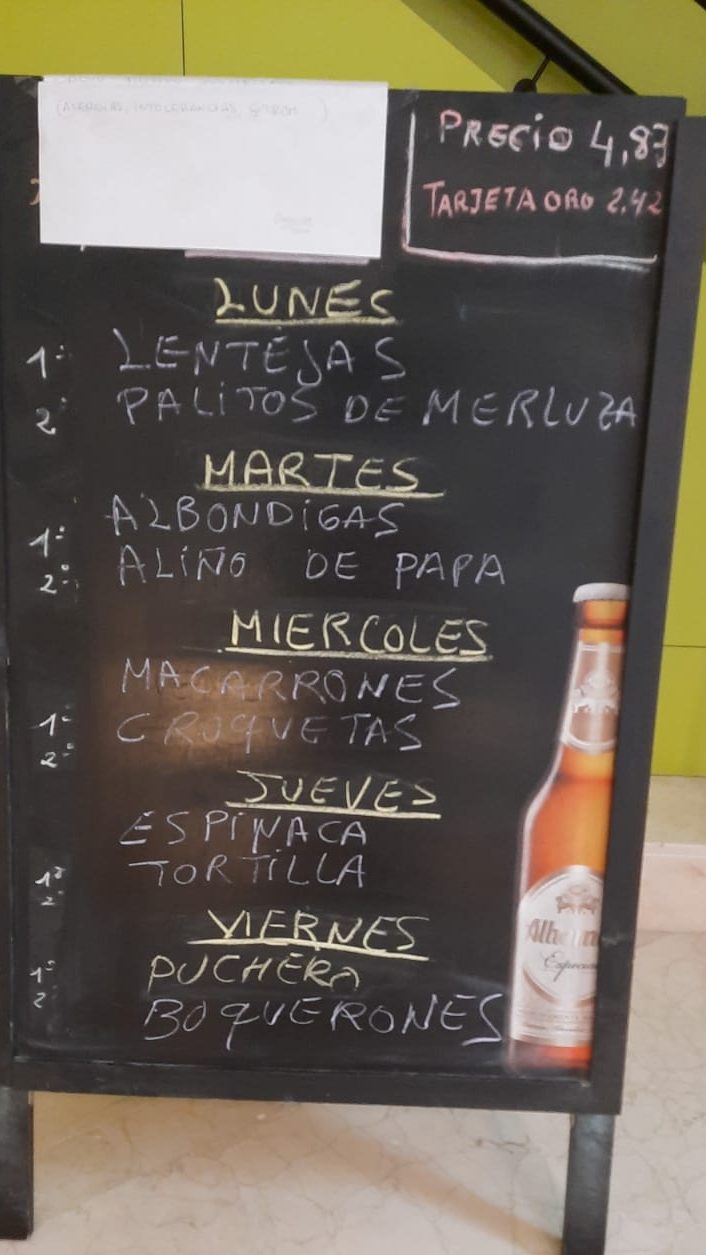 (ALERGIAS, INTOLERANCIAS,
PRECIO 4,87
TARJETA ORO 2.42
LUNES
1º LENTEJAS
2º PALITOS DE MERLUZA
MARTES
1º ALBONDIGAS
2º ALIÑO DE PAPA
MIERCOLES
1º MACARRONES
2º CROQUETAS
JUEVES
1º ESPINACA
2º TORTILLA
VIERNES
1º PUCHERO
2º BOQUERONES
Alhambra
Especial